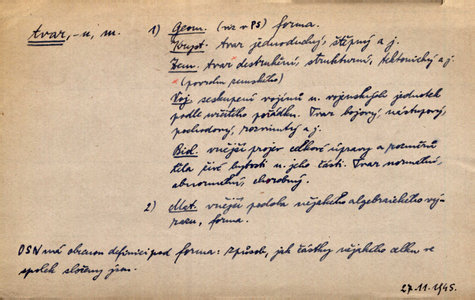 tvar, -u, m. 1) Geom. (viz v PS) forma.
Kryst. tvar jednoduchý, štěpný a j.
Zem. tvar destrukční, strukturní, tektonický a j.
(povrchu zemského)
Voj. seskupení vojínů n. vojenských jednotek
podle určitého pořádku. Tvar bojový, nástupový,
pochodový, rozvinutý a j.
Biol. vnější projev celkové úpravy a rozměrů
těla živé bytosti n. jeho části. Tvar normální,
abnormální, chorobný.
2) Mat. vnější podoba nějakého algebraického vý-
razu, forma.
OSN má obecnou definici pod forma: způsob, jak částky nějakého celku ve
spolek složeny jsou.
27.11.1945.